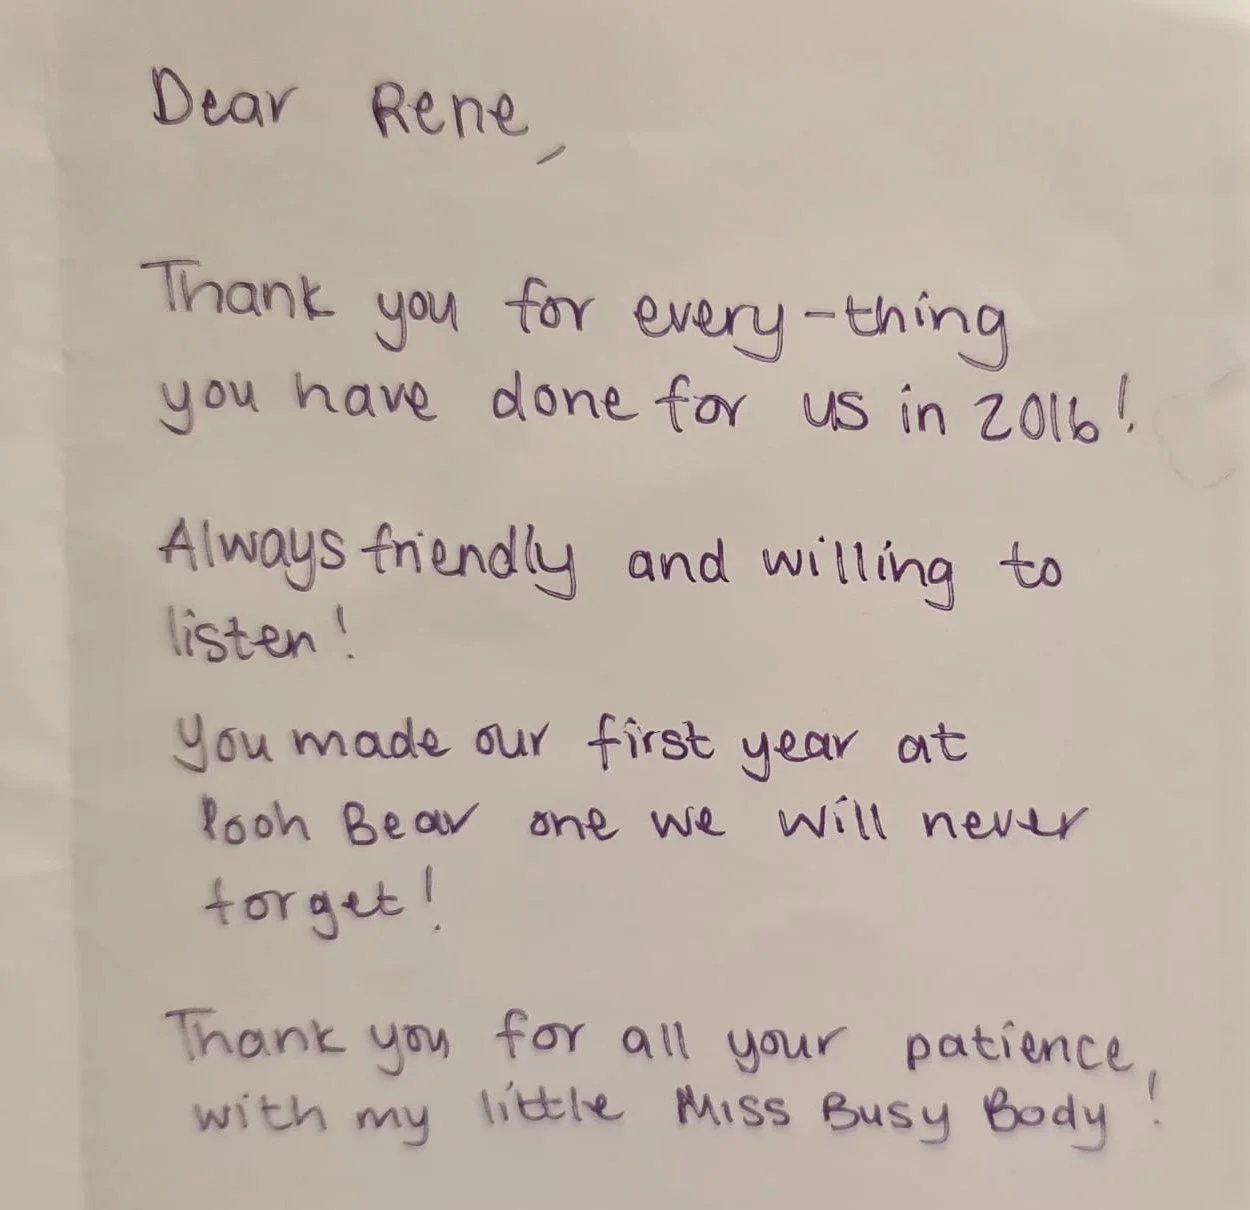 Dear Rene,
Thank you for every-thing
you have done for us in 2016!
Always friendly and willing to
listen!
You made our first year at
Pooh Bear one we will never
forget!
Thank you for all your patience,
with my little Miss Busy Body!